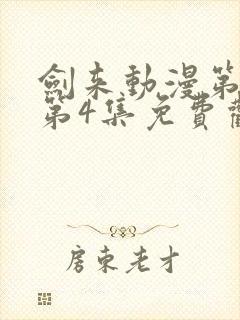 劍来動漫第
第4集免費觀
房東老才